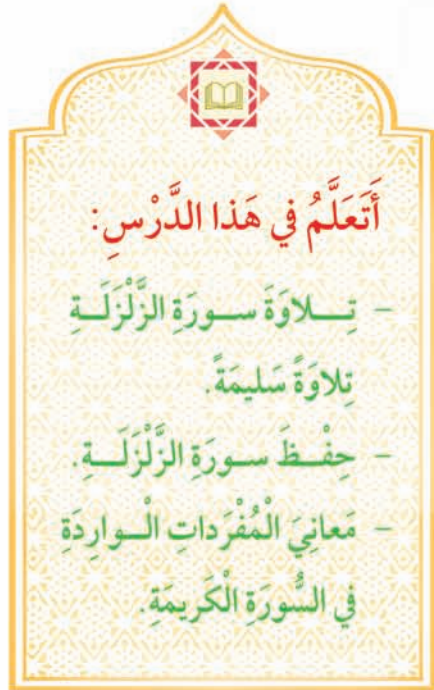 أَتَعَلَّمُ في هَذا الدَّرْسِ:
- تِــلاوَةَ ســورَةِ الزَّلْزَلَــةِ
تِلاوَةً سَليمَةً.
- حِفْــظَ ســورَةِ الزَّلْزَلَــةِ.
- مَعانِيَ الْمُفْرَداتِ الْــوارِدَةِ
في السُّورَةِ الْكَريمَةِ.